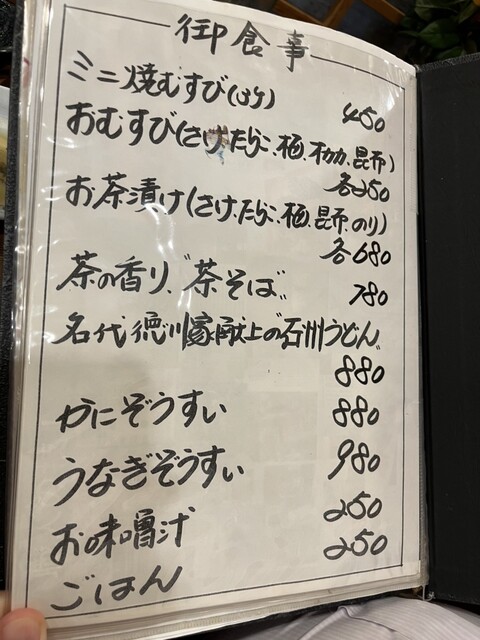 御食事
ミニ焼むすび(3ヶ) 450
おむすび(さけ、たらこ、梅、オカカ、昆布)
各250
お茶漬け(さけ、たらこ、梅、昆布、のり)
各680
茶の香り、"茶そば" 780
名代徳川家献上の"石州うどん"
880
かにぞうすい 880
うなぎぞうすい 980
お味噌汁 250
ごはん 250